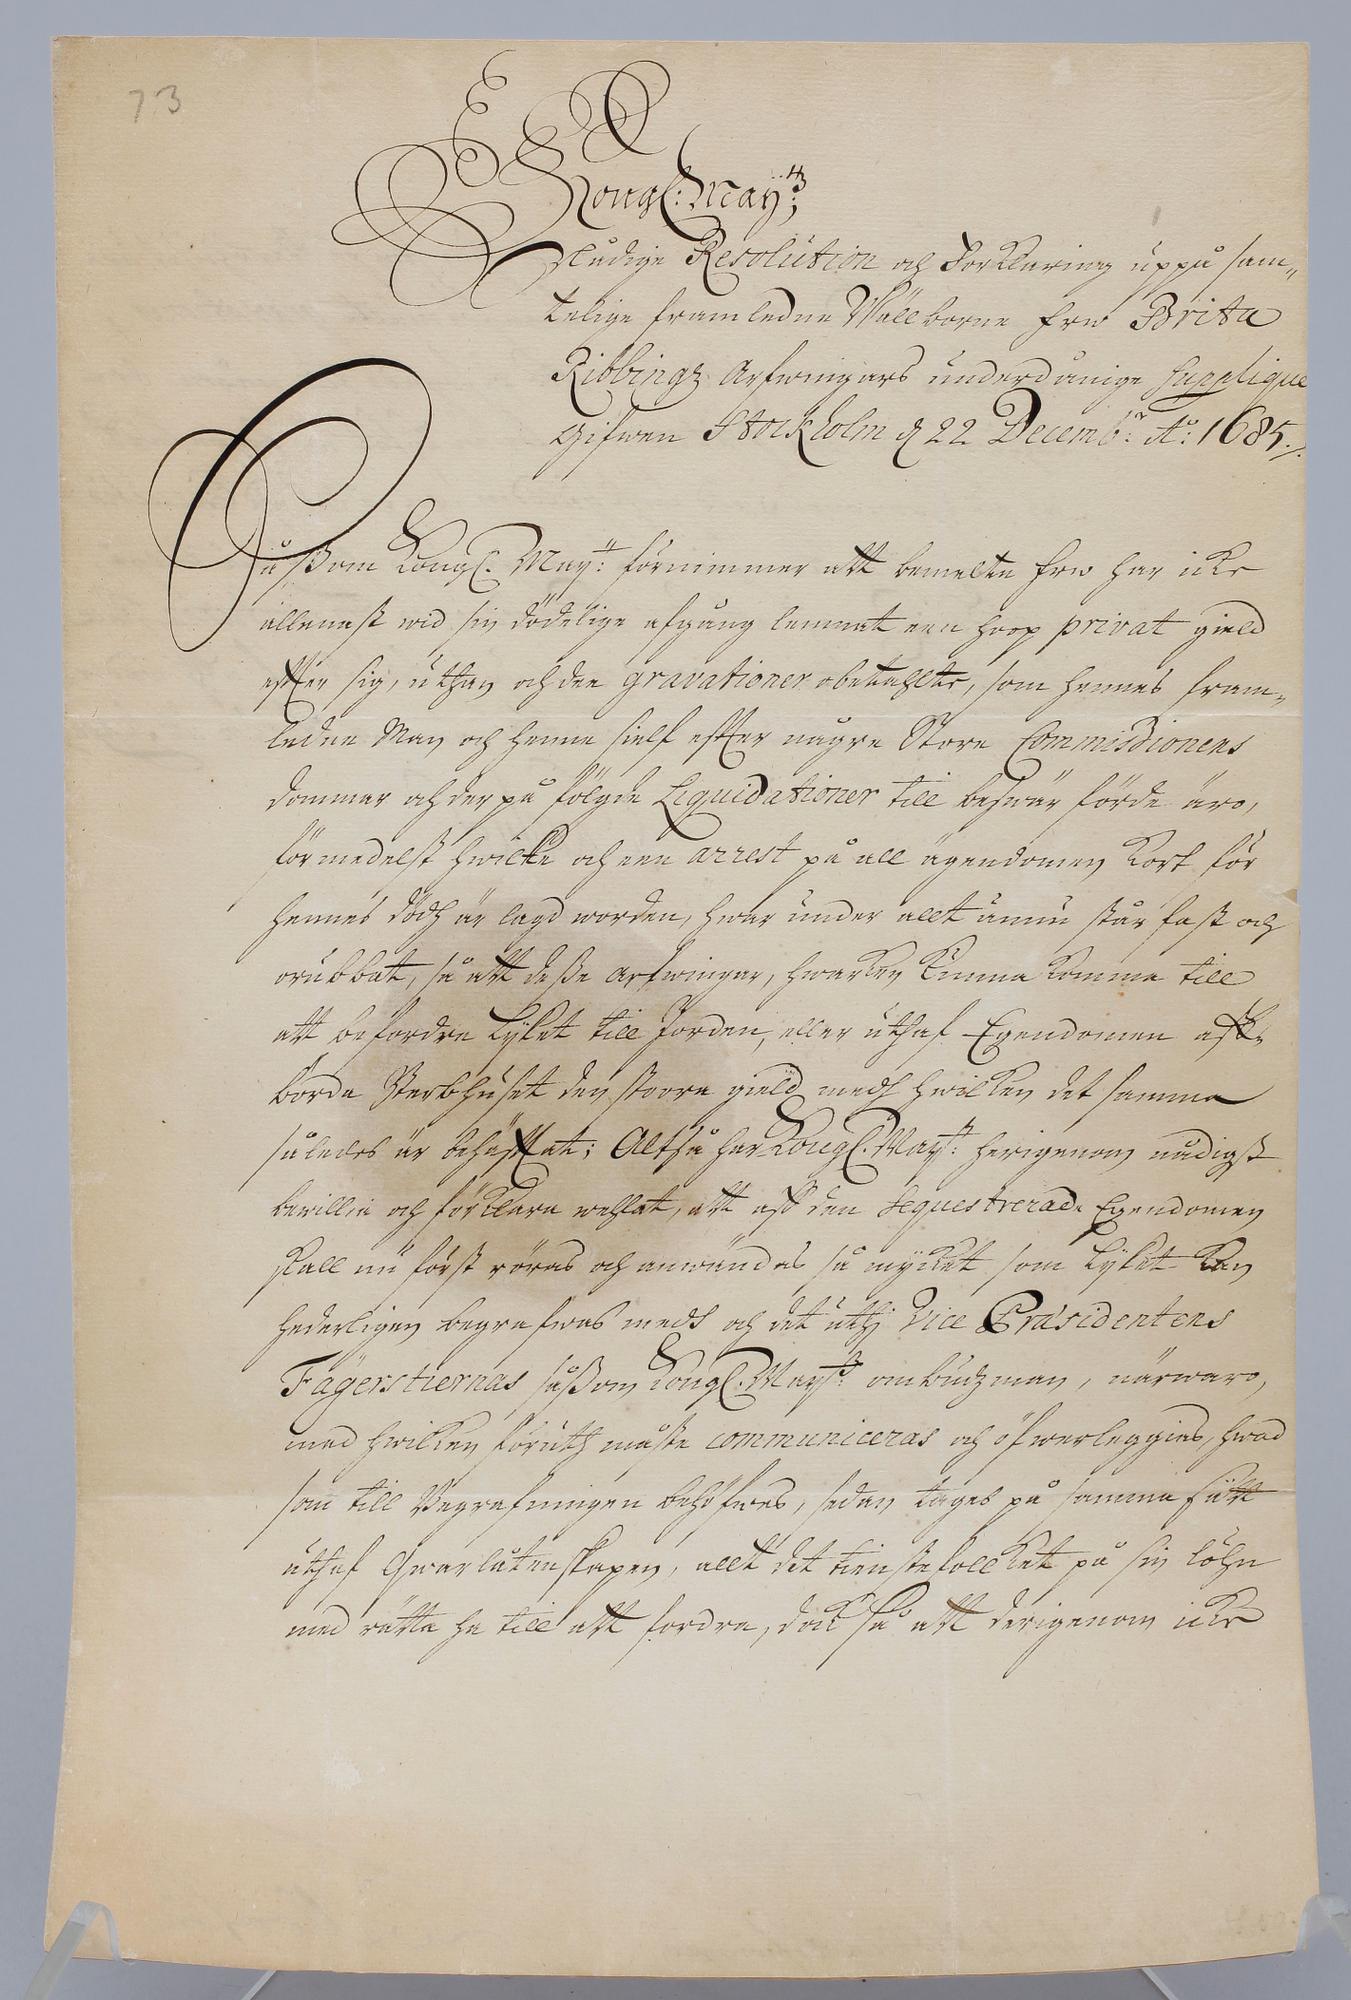 73
Kongl: May:tz
Nådige Resolution och Förklaring uppå sam-
telige framledne Wällborne Frw Brita
Ribbingz Arfwingars underdånige Supplique
Gifwen Stockholm d 22 Decemb:r A:o 1685./.
Såssom Kongl. May:tt förnimmer att bemelte Frw har icke
allenast wid sin dödelige afgång lemnat een hoop privat gield
effter sig, uthan och dee gravationer obetahlte, som hennes fram-
ledne Man och henne sielf effter några Store Commissionens
dommar och der på fölgde Liquidationer till beswär förde äro,
förmedelst hwilke och een arrest på all ägendomen kort för
hennes dödh är lagd worden, hwar under allt ännu står fast och
orubbat, så att desse Arfwingar, hwarken kunna komma till
att befordra Lyket till Jorden, eller uthaf Egendomen aff-
börda Sterbhuset den stoora gield medh hwilken det samma
således är behäfftat; Altså har Kongl. May:tt herigenom nådigst
bewillia och förklara wehlat, att aff den sequestrerade Egendomen
skall nu först röras och anwändas så mycket som Lyket kan
hederligen begrafwas medh och det uthj Vice Præsidentens
Fägerstiernas såssom Kongl. May:tz ombudzman, närwaro,
med hwilken föruth måste communiceras och öfwerleggies, hwad
som till Begrafningen behöfwes, sedan tages på samma sätt
uthaf Qwarlåtenskapen, allt det tienstefolcket på sin löhn
med rätta ha till att fordra, dock så att derigenom icke